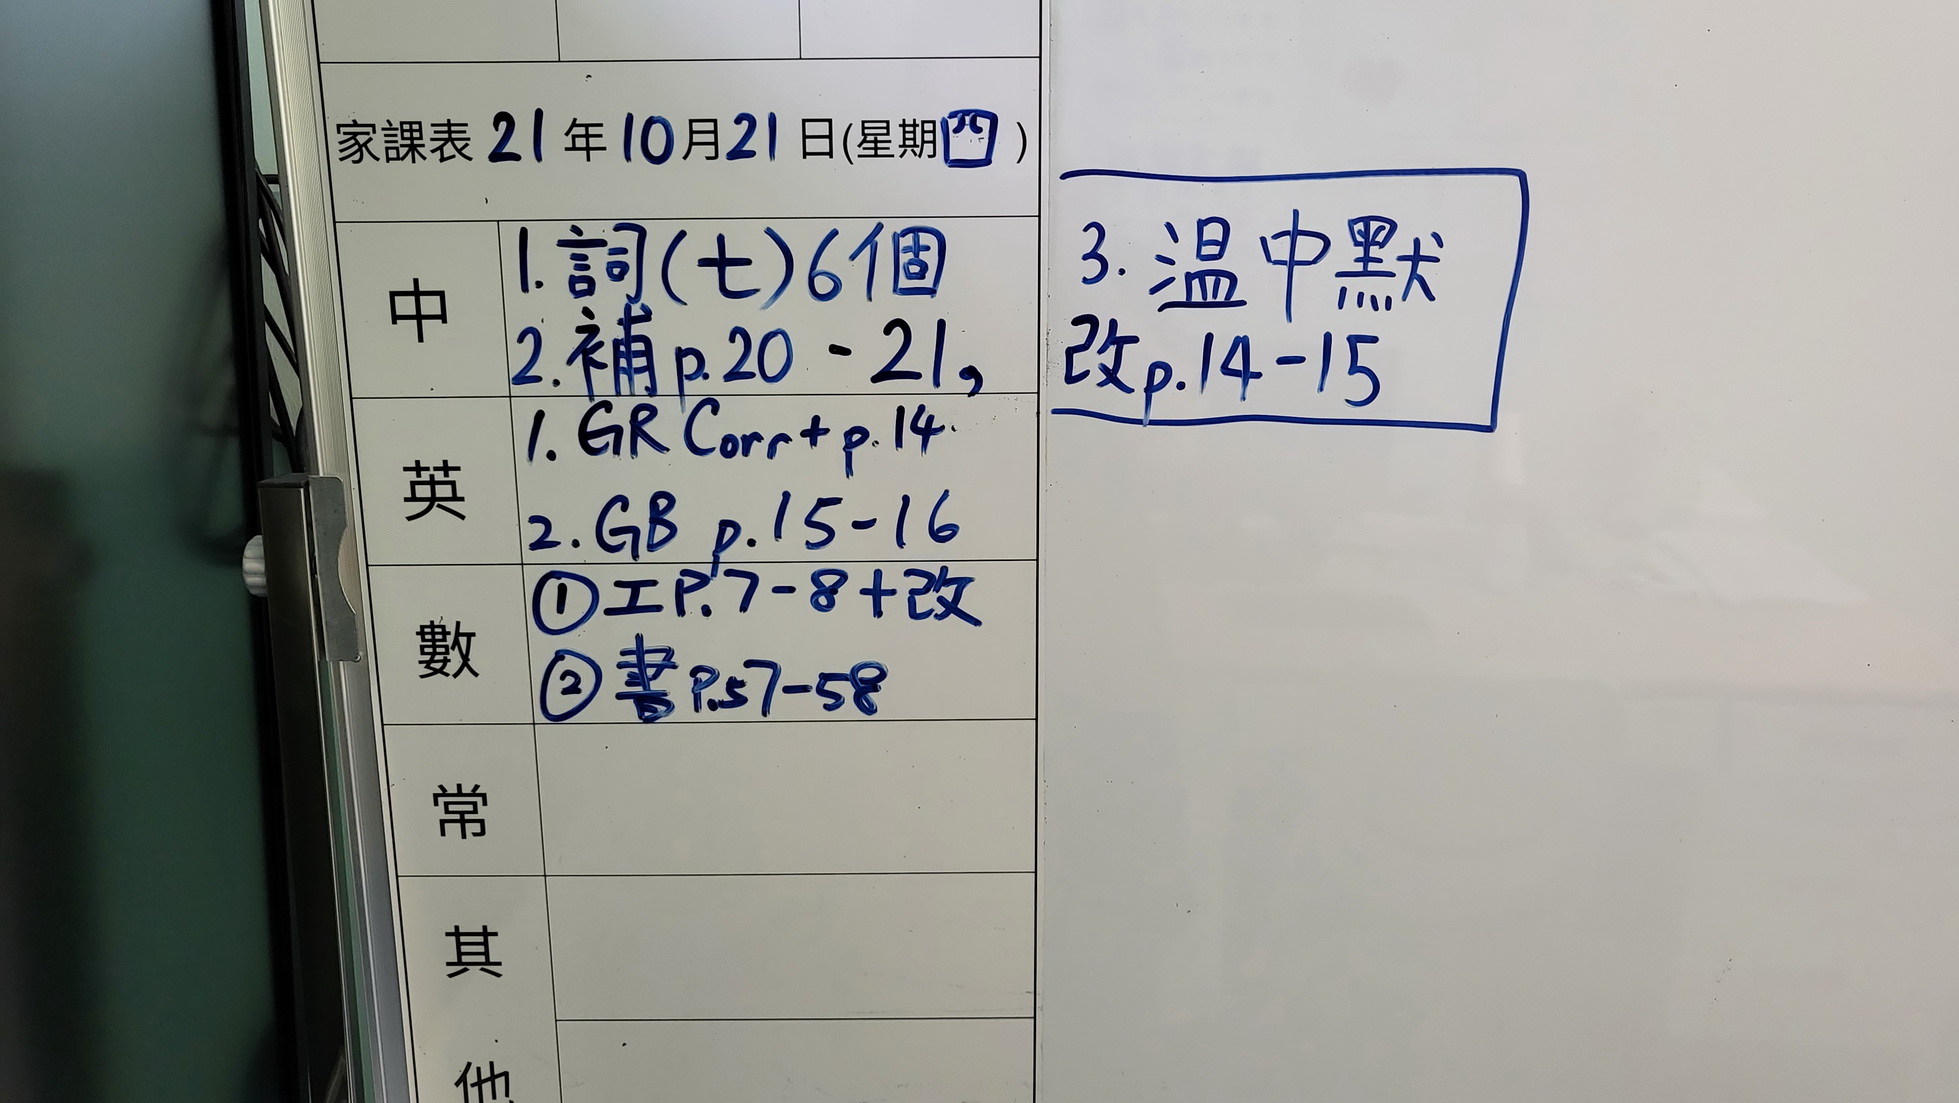 家課表 21 年 10 月 21 日(星期四)
中
1. 詞(七)6個
2. 補p.20 - 21,
改p.14-15
3. 温中默
英
1. GR Corr + p.14
2. GB p.15-16
數
① 工P.7-8+改
② 書P.57-58
常
其
他